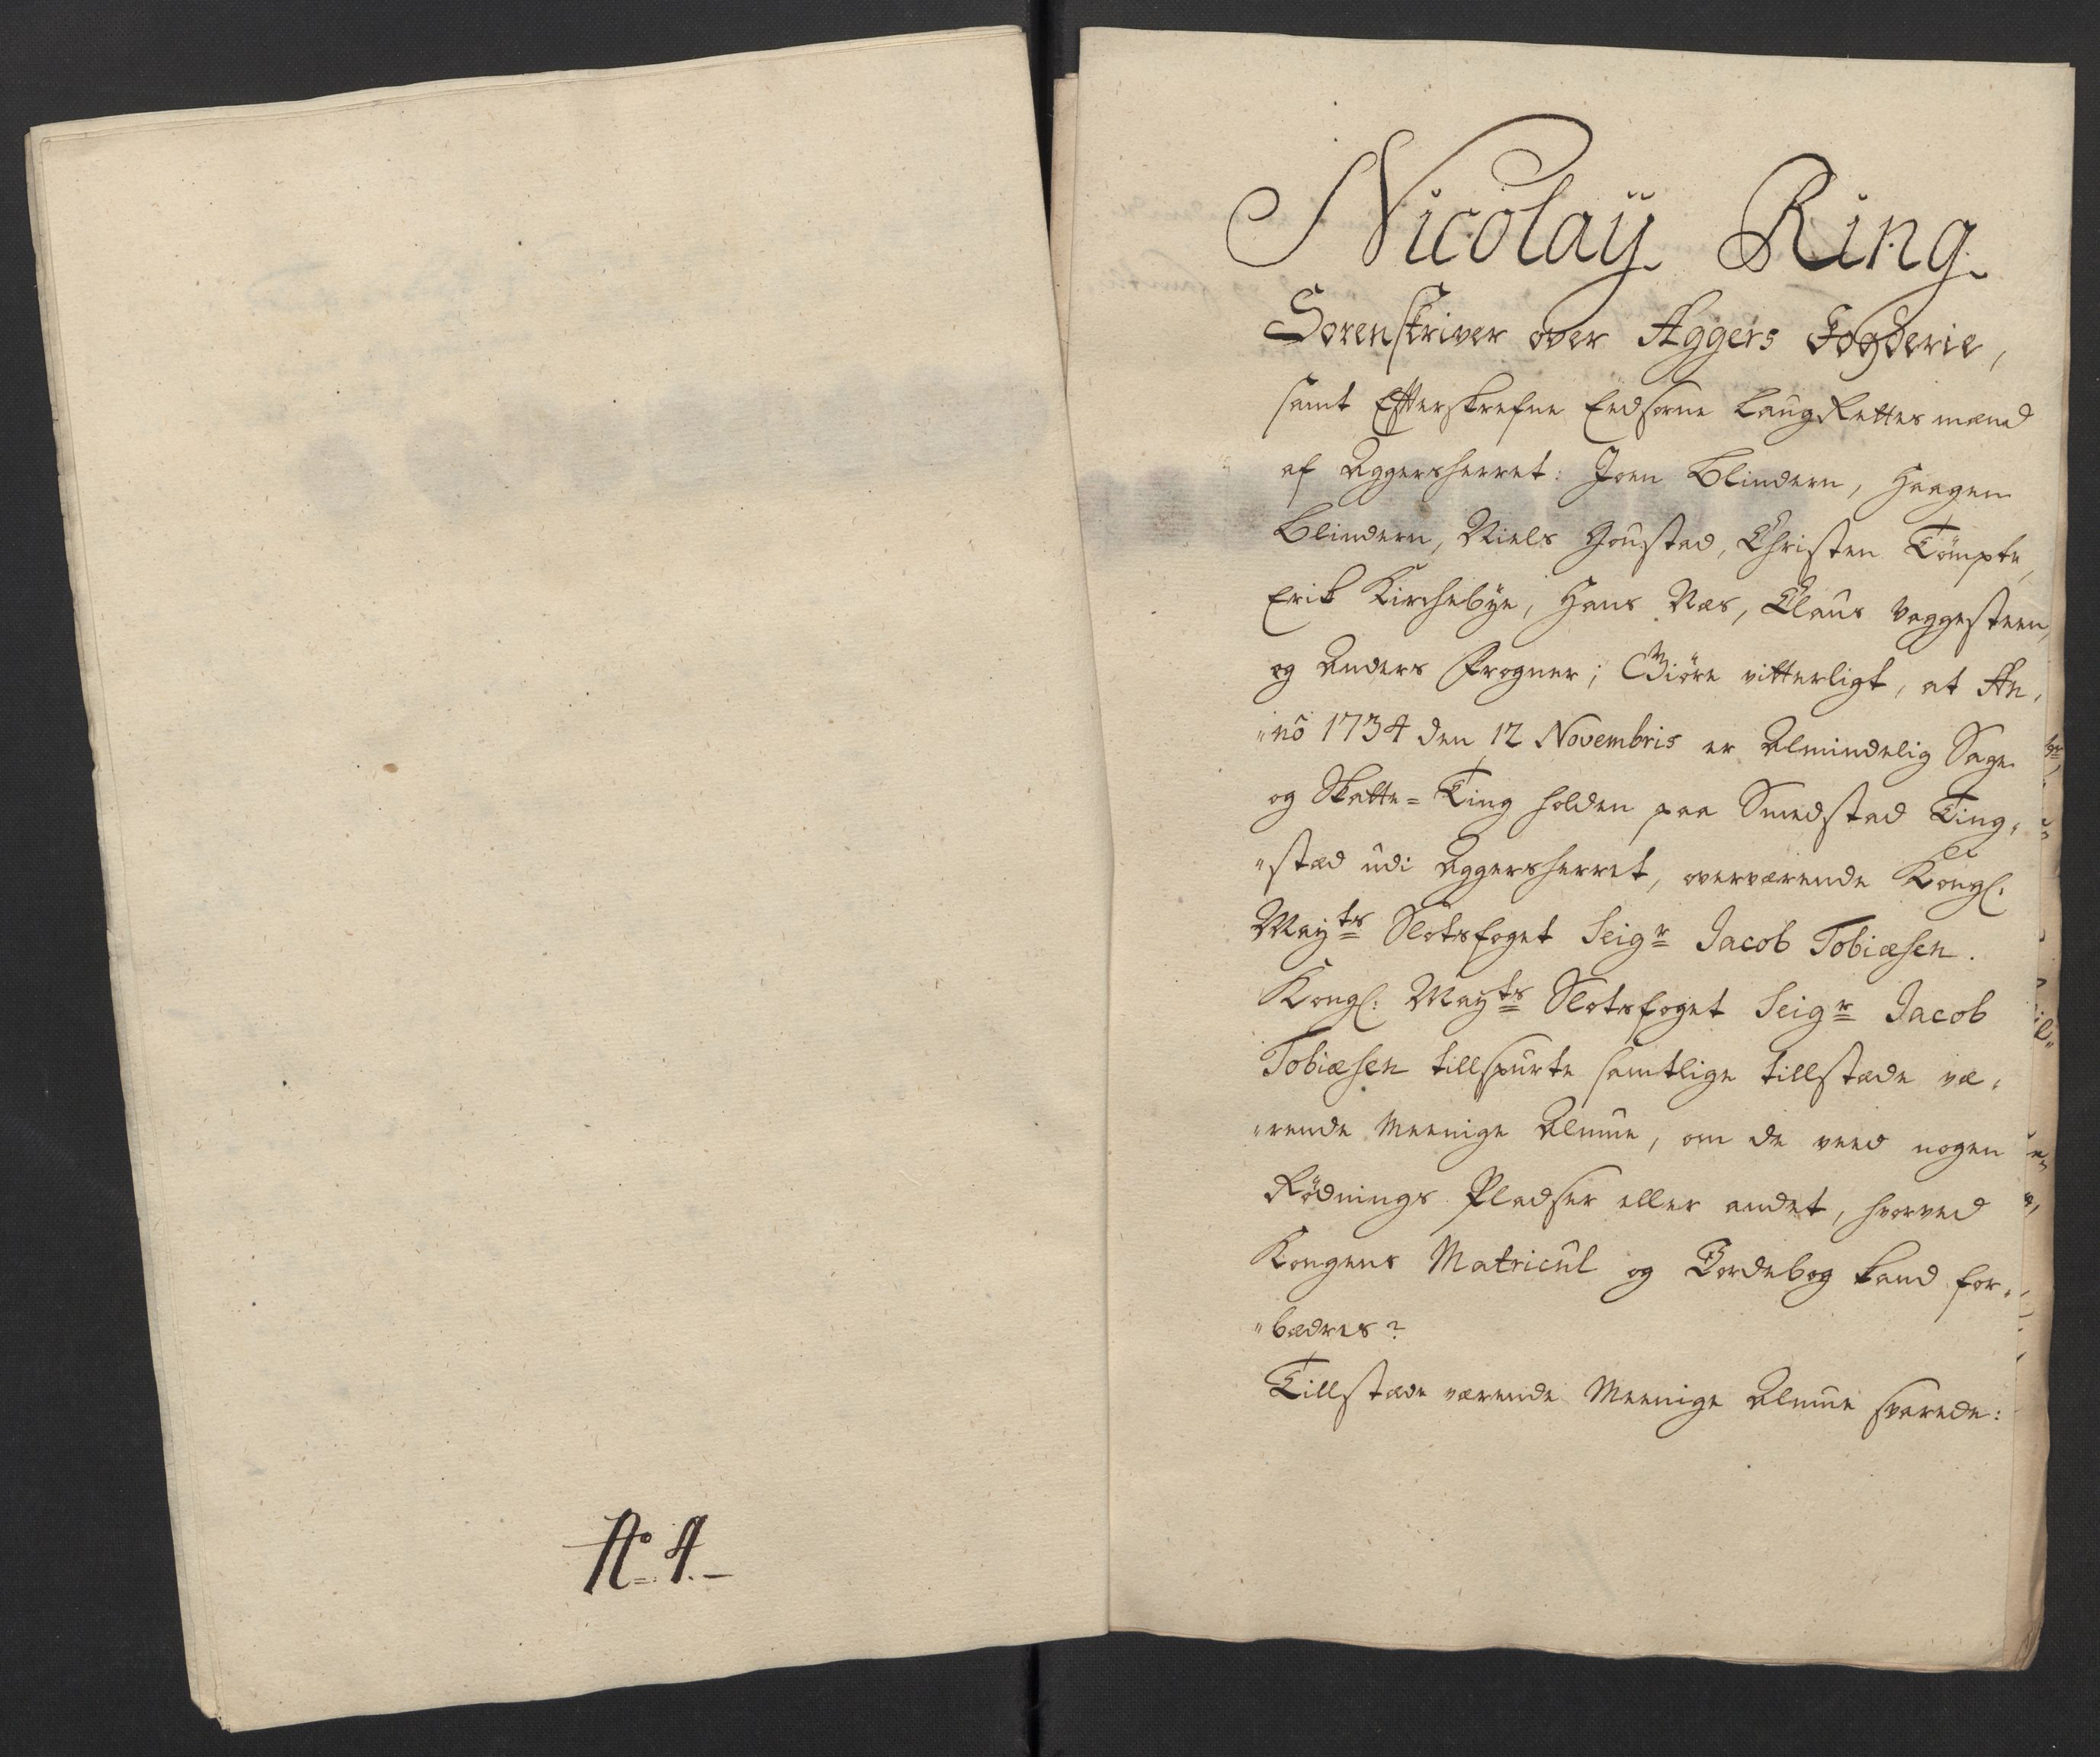 No. 4.
Nicolaÿ Ring
Sorenskriver over Aggers Fogderie,
samt Efterskrefne Eedsorne LaugRettes mænd
af Aggersherret: Joen Blindern, Haagen
Blindern, Niels Goustad, Christen Tömpte,
Erik Kirchebÿe, Hans Næs, Claus Vaggesteen,
og Anders Frogner; Giöre vitterligt, at An-
"nô 1734 den 12 Novembris er Almindelig Sage
og Skatte=Ting holden paa Smedstad Ting-
"stæd udi Aggersherret, overværende Kongl:
Mayts Slotsfoget Seigr Jacob Tobiæsen.
Kongl: Mayts Slotsfoget Seigr Jacob
Tobiæsen tillspurte samtlige tillstæde væ-
"rende Meenige Almue, om de veed nogen
Rödnings Pladser eller andet, hvorved
Kongens Matricul og Jordebog kand for-
"bædres?
Tillstæde værende Meenige Almue svarede: